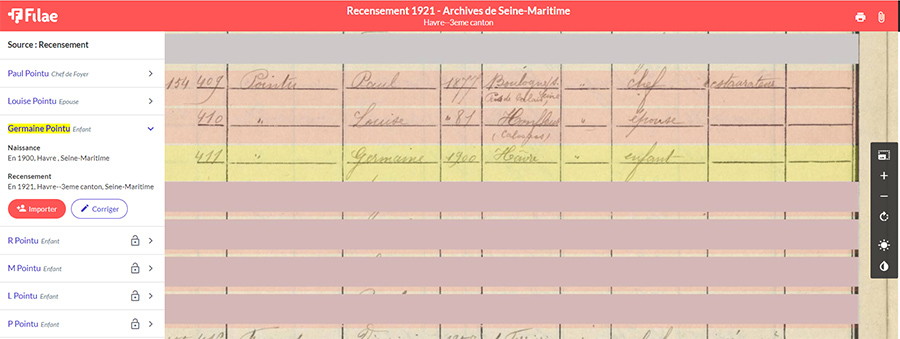 Filae
Recensement 1921 - Archives de Seine-Maritime
Havre--3eme canton
Source : Recensement
Paul Pointu Chef de Foyer
Louise Pointu Epouse
Germaine Pointu Enfant
Naissance
En 1900, Havre , Seine-Maritime
Recensement
En 1921, Havre--3eme canton, Seine-Maritime
Importer
Corriger
R Pointu Enfant
M Pointu Enfant
L Pointu Enfant
P Pointu Enfant
154 409 Pointu Paul 1877 Boulogne s. chef
410 " Louise " 81 Honfleur " épouse
(Calvados)
411 " Germaine 1900 Havre " enfant